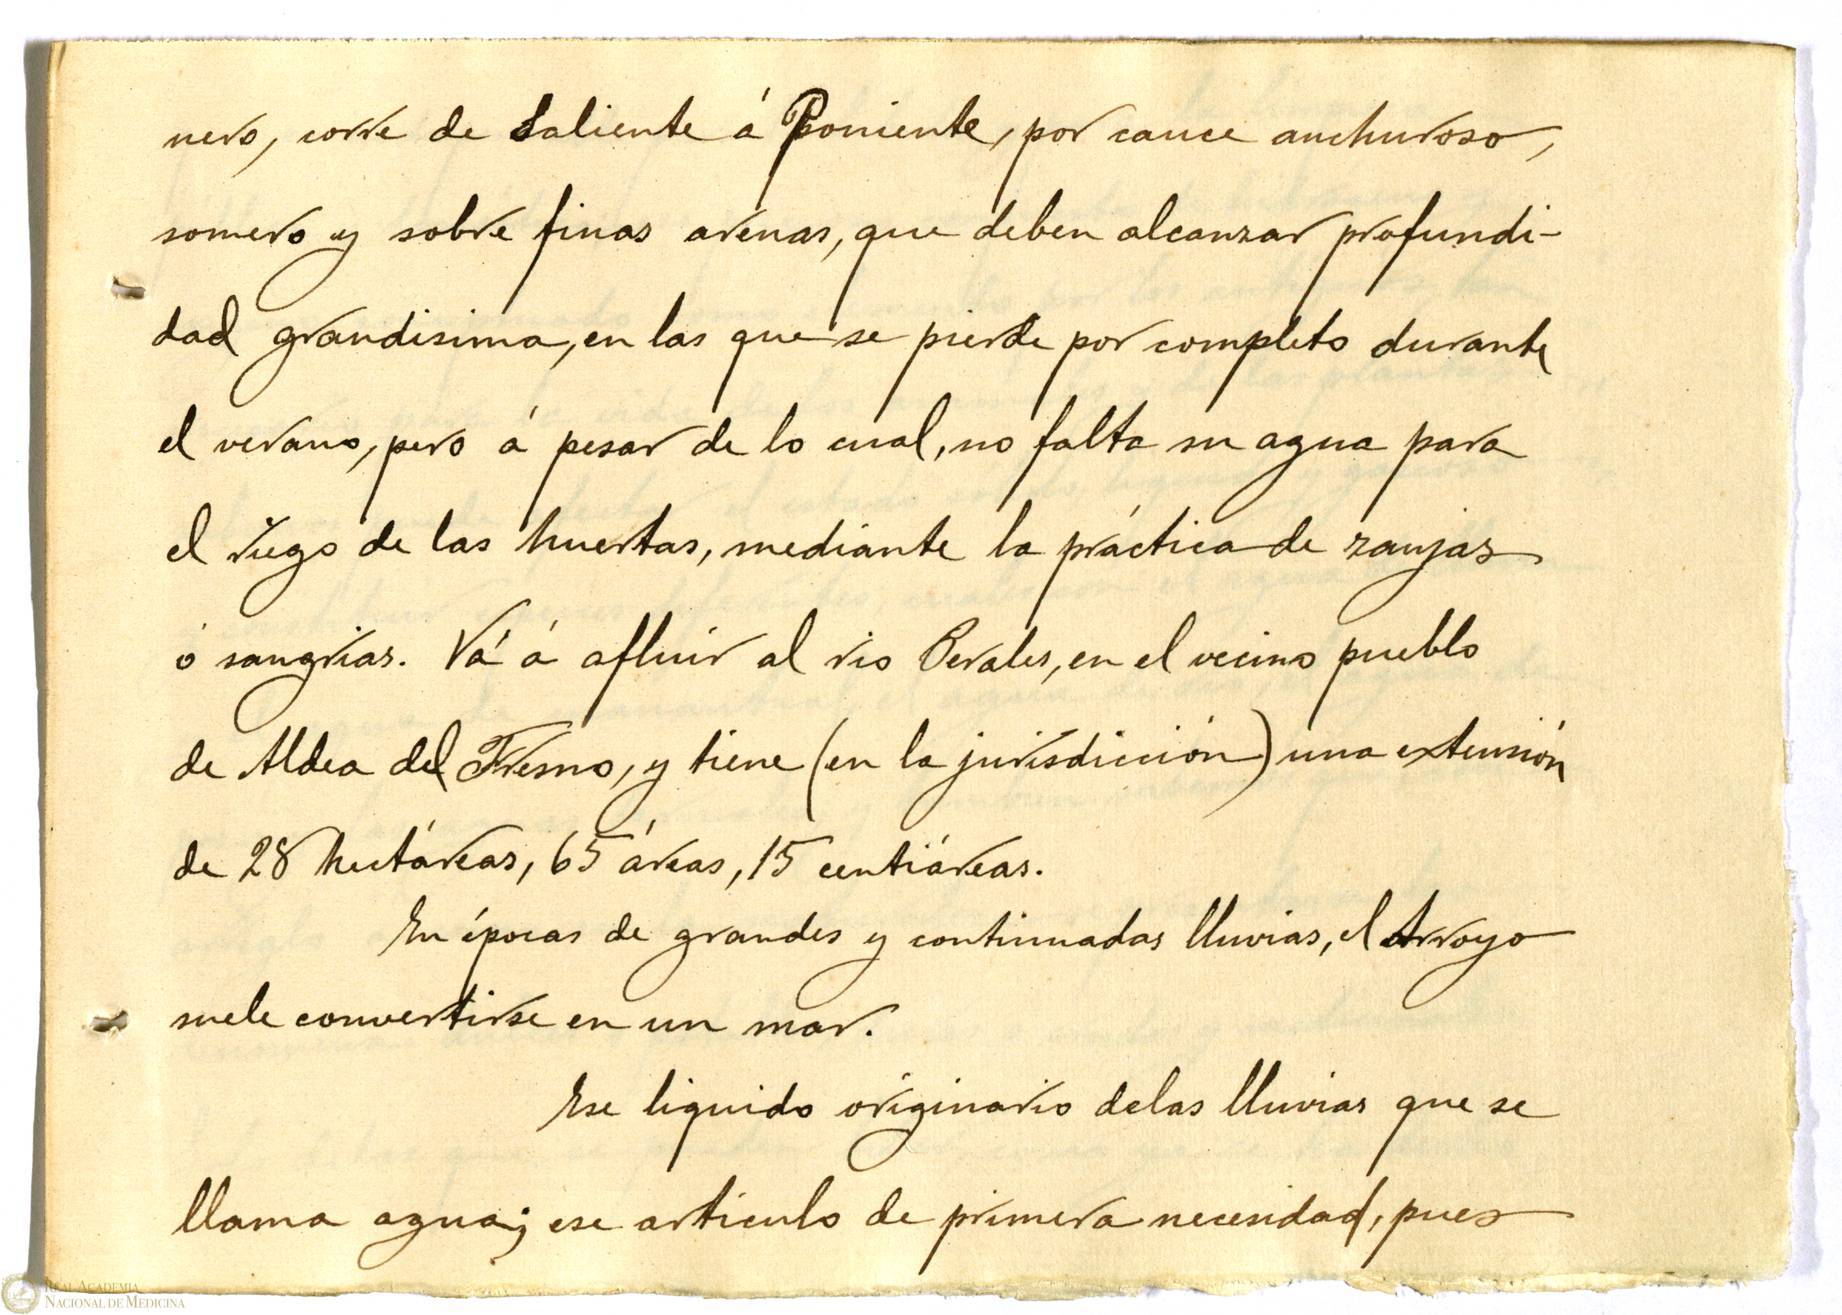 nero, corre de Saliente á Poniente, por cauce anchuroso,
somero y sobre finas arenas, que deben alcanzar profundi-
dad grandisima, en las que se pierde por completo durante
el verano, pero á pesar de lo cual, no falta su agua para
el riego de las huertas, mediante la práctica de zanjas
ó sangrias. Vá á afluir al rio Perales, en el vecino pueblo
de Aldea del Fresno, y tiene (en la jurisdicción) una extensión
de 28 hectáreas, 65 áreas, 15 centiáreas.
En épocas de grandes y continuadas lluvias, el Arroyo
suele convertirse en un mar.
Ese liquido originario de las lluvias que se
llama agua; ese articulo de primera necesidad, pues
REAL ACADEMIA
NACIONAL DE MEDICINA